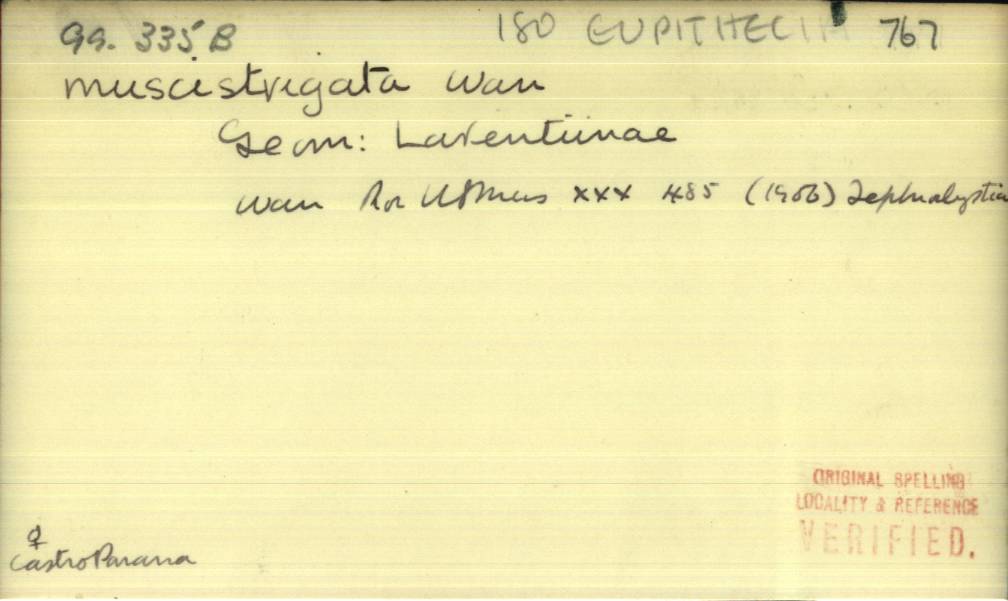 Gg. 335 B 180 EUPITHECIA 767
muscistrigata Warr
Geom: Larentiinae
Warr Proc USMus xxx 485 (1906) Tephroclystia
♀
Castro Parana
ORIGINAL SPELLING
LOCALITY & REFERENCE
VERIFIED.